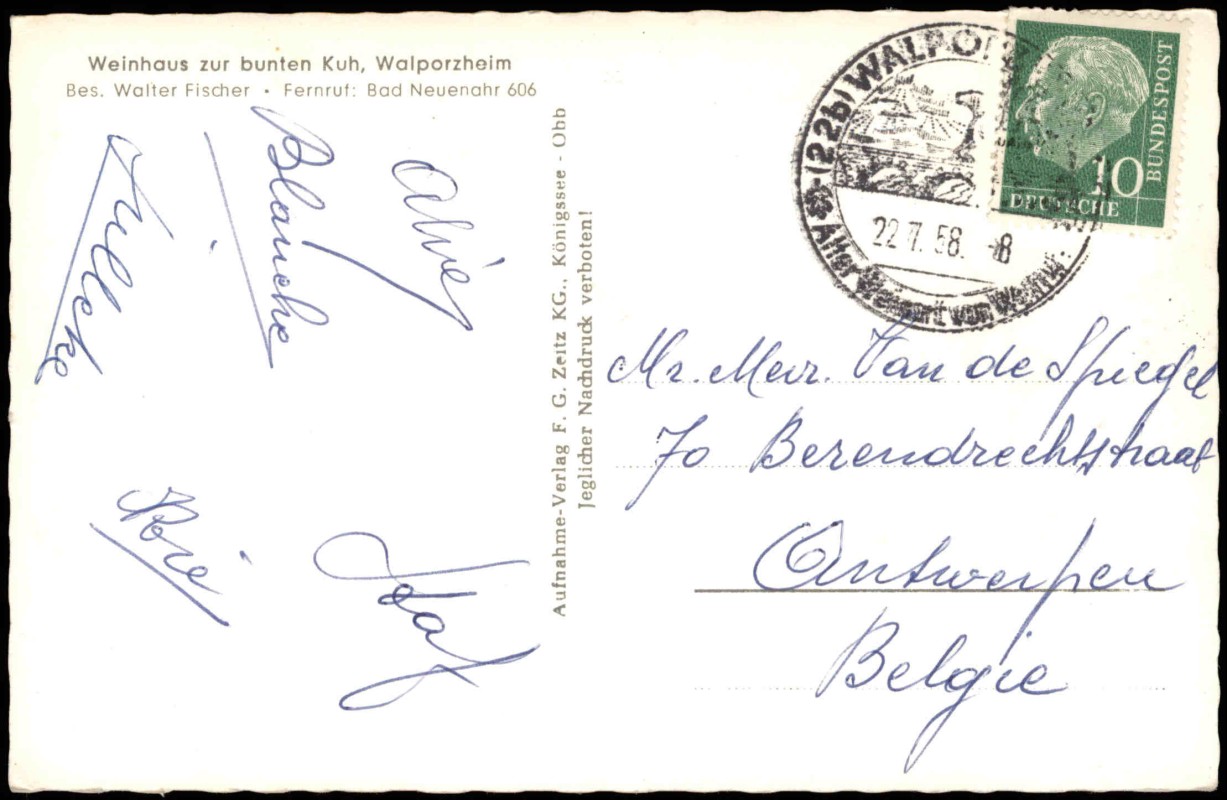 Weinhaus zur bunten Kuh, Walporzheim
Bes. Walter Fischer • Fernruf: Bad Neuenahr 606
Blanche
Josaf
Aufnahme-Verlag F. G. Zeitz KG., Königssee - Obb
Jeglicher Nachdruck verboten!
(22b) WALPO
22.7.58. -8
Alter Weinort von Weltruf
10
DEUTSCHE
BUNDESPOST
Mr. Mevr. Van de Spiegel
70 Berendrechtstraat
Antwerpen
Belgie